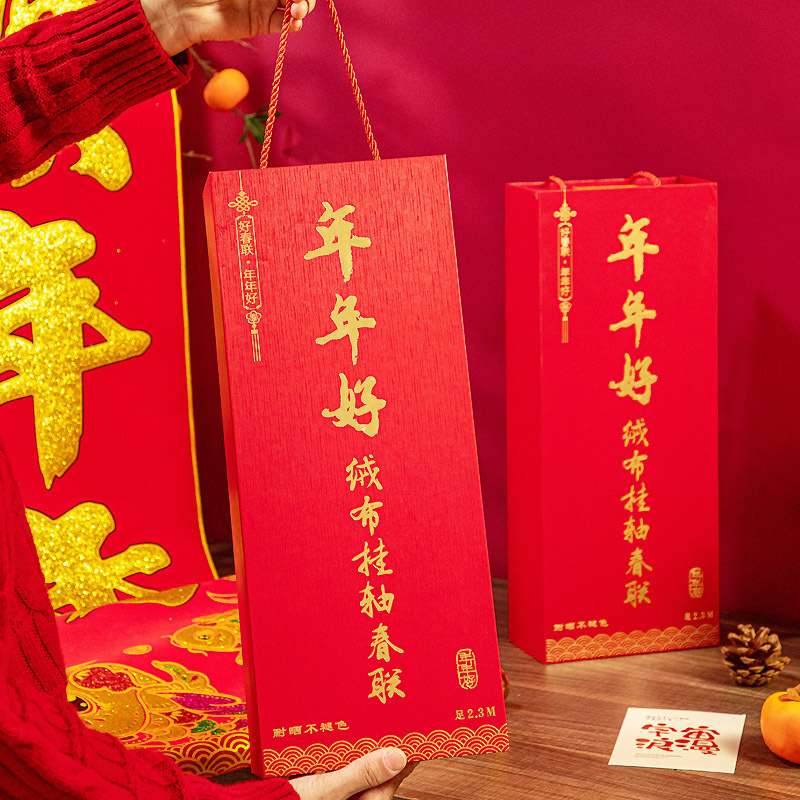 好春联·年年好
年年好
绒布挂轴春联
年年好
耐晒不褪色
足2.3M
好春联·年年好
年年好
绒布挂轴春联
年年好
耐晒不褪色
足2.3M
年